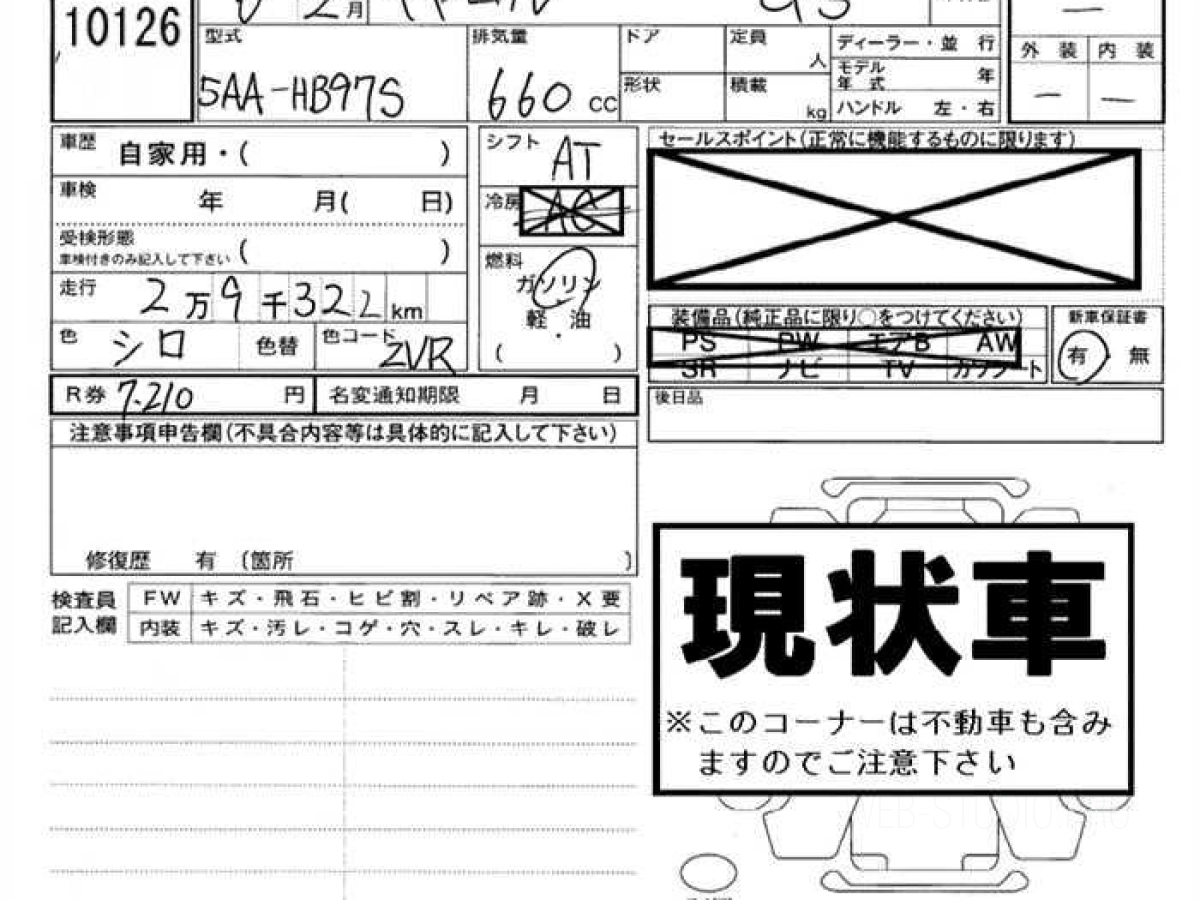 10126
2 月
型式
5AA-HB97S
排気量
660 cc
ドア
形状
定員
人
積載
kg
ディーラー・並 行
モデル
年 式 年
ハンドル 左・右
外 装 内 装
車歴 自家用・( )
車検 年 月( 日)
受検形態
車検付きのみ記入して下さい ( )
走行 2万9千322km
色 シロ 色替 色コード ZVR
シフト AT
冷房 AC
燃料
ガソリン
軽・油
( )
セールスポイント(正常に機能するものに限ります)
装備品(純正品に限り○をつけてください)
PS PW エアB AW
SR ナビ TV カワシート
新車保証書
有 無
R券 7.210 円 名変通知期限 月 日
後日品
注意事項申告欄(不具合内容等は具体的に記入して下さい)
修復歴 有 〔箇所 〕
検査員
記入欄
FW キズ・飛石・ヒビ割・リペア跡・X要
内装 キズ・汚レ・コゲ・穴・スレ・キレ・破レ
現状車
※このコーナーは不動車も含み
ますのでご注意下さい